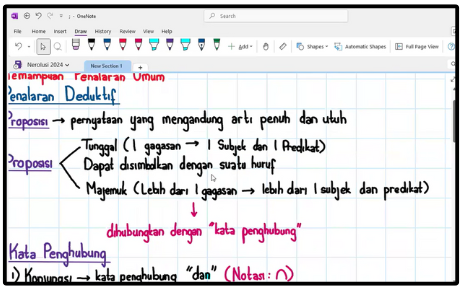 - OneNote
Search
File Home Insert Draw History Review View Help
+ Add Shapes Automatic Shapes Full Page View
Nerolusi 2024 New Section 1 +
Kemampuan Penalaran Umum
Penalaran Deduktif
Proposisi → pernyataan yang mengandung arti penuh dan utuh
Tunggal (1 gagasan → 1 Subjek dan 1 Predikat)
Proposisi Dapat disimbolkan dengan suatu huruf
Majemuk (Lebih dari 1 gagasan → lebih dari 1 subjek dan predikat)
↓
dihubungkan dengan "kata penghubung"
Kata Penghubung
1) Konjungsi → kata penghubung "dan" (Notasi: ∩)